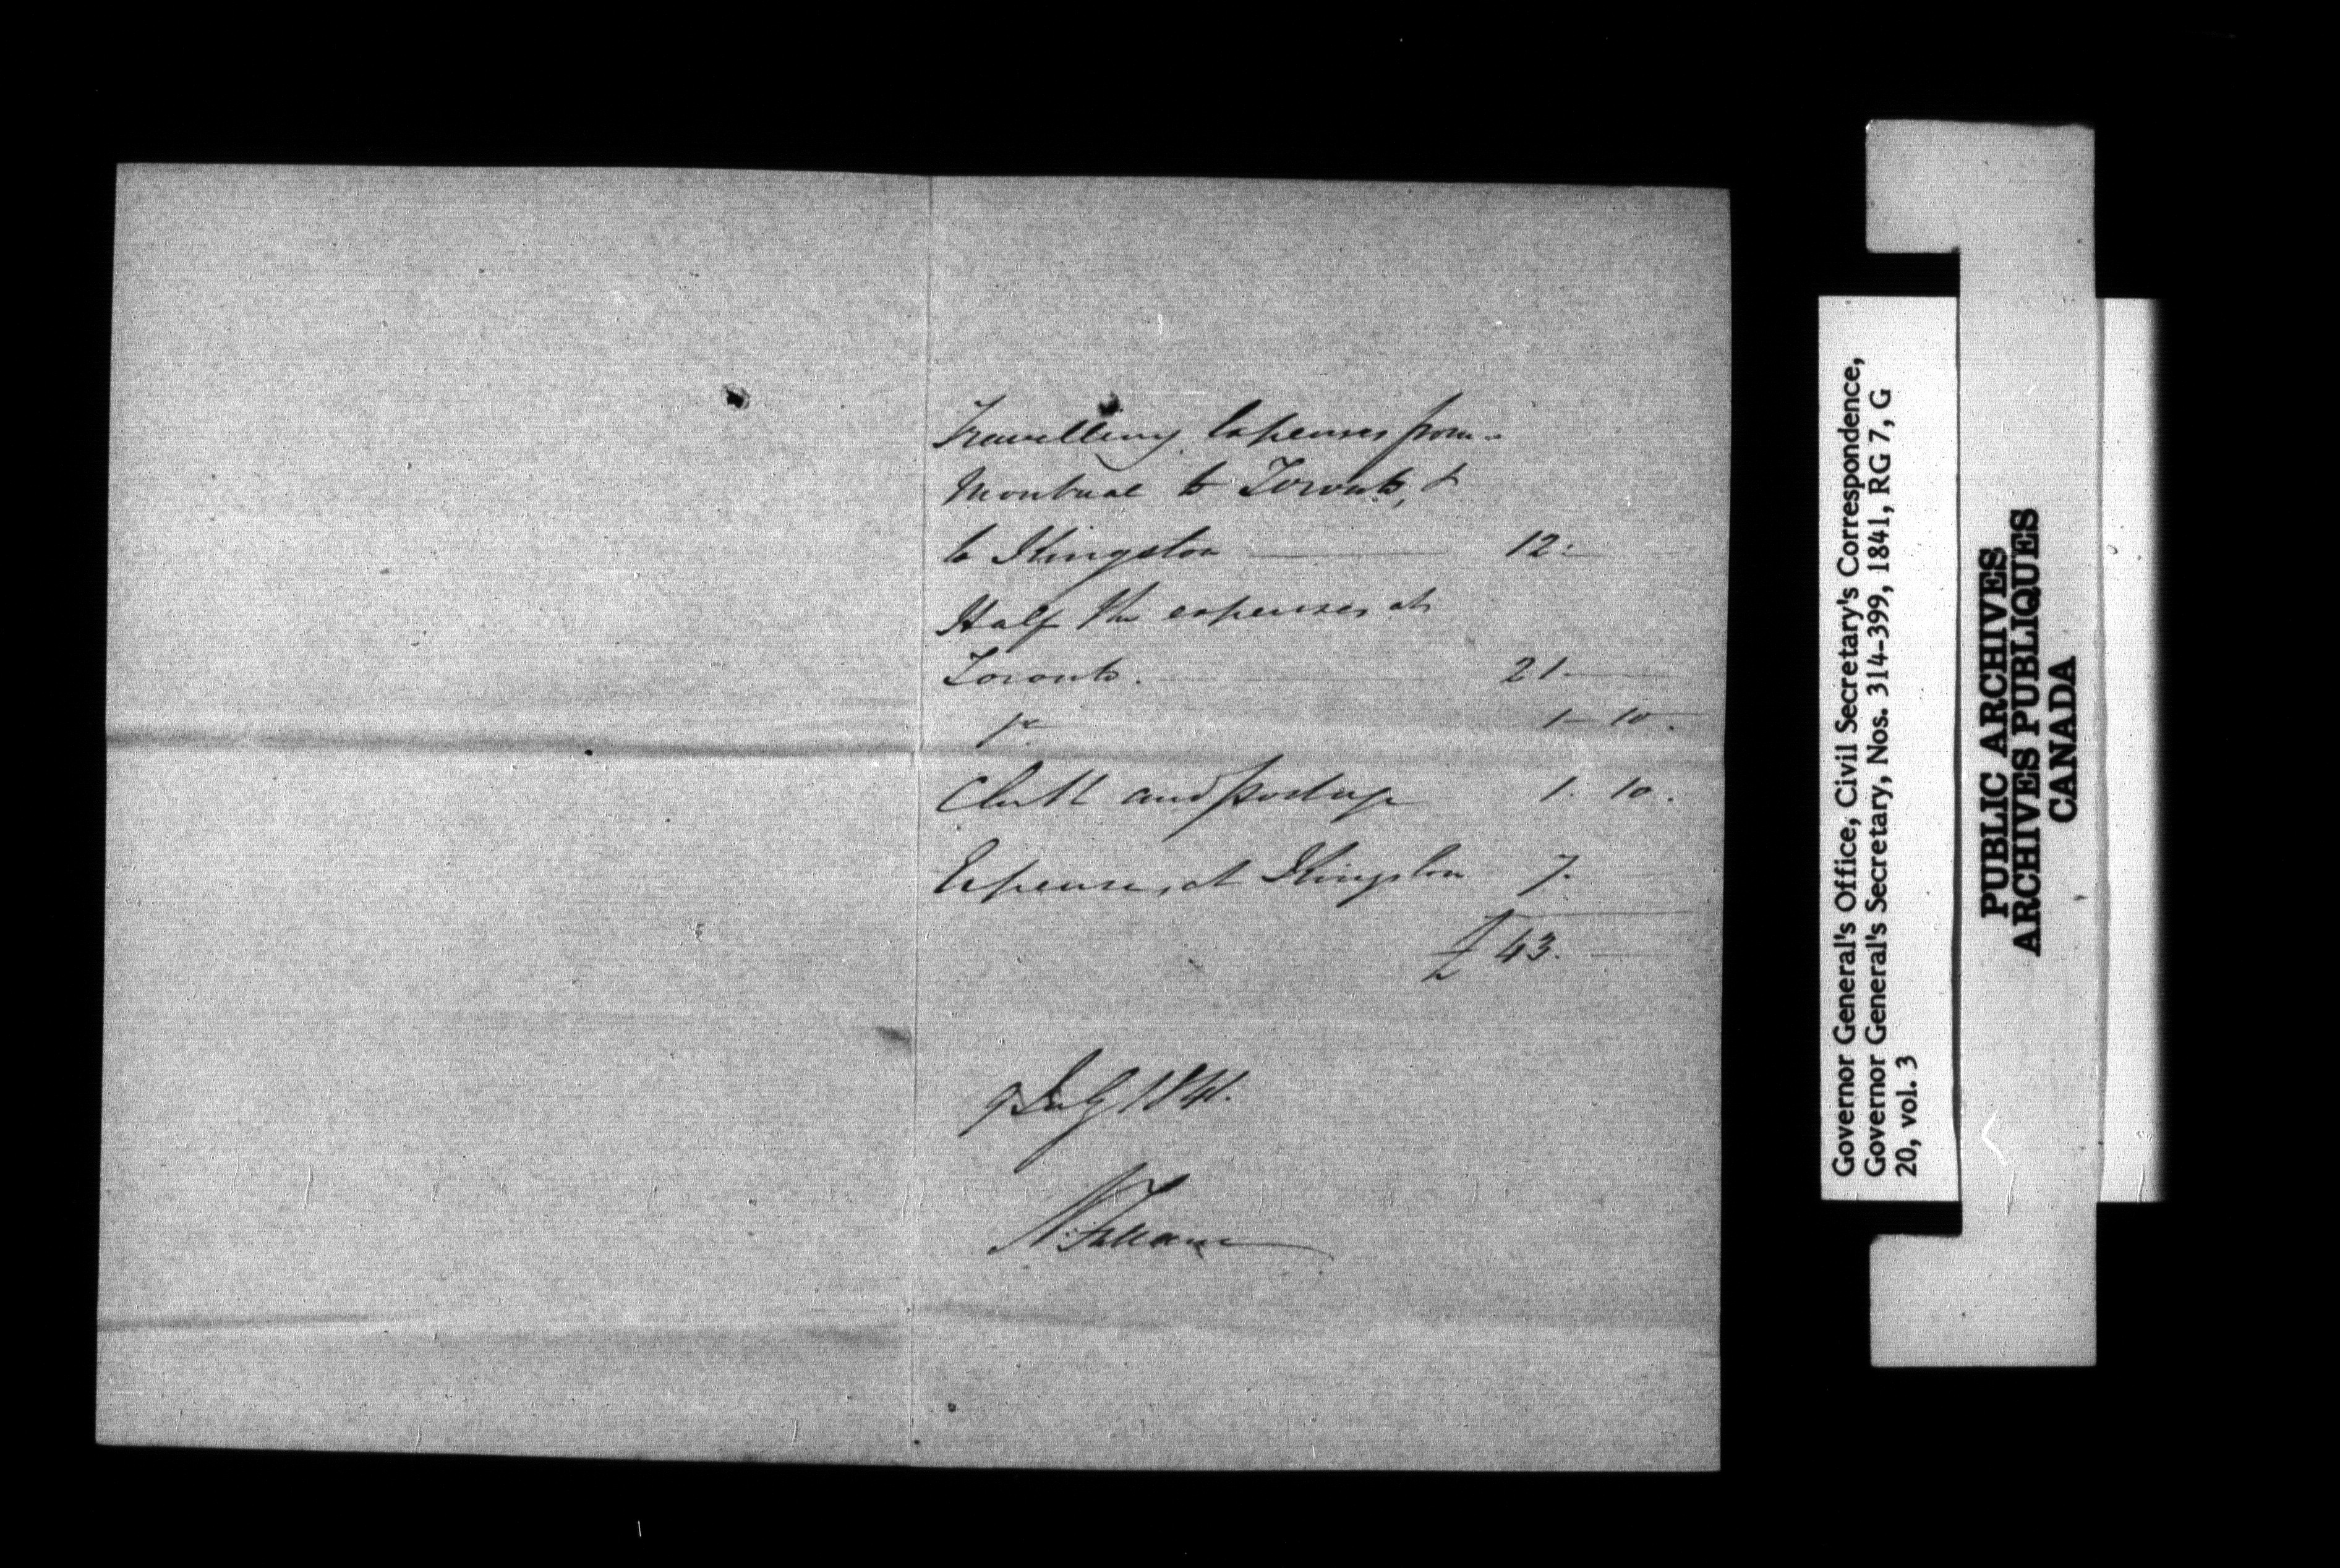 Travelling Expenses from
Montreal to Toronto, &
to Kingston 12:
Half the expenses at
Toronto. 21
1 10.
Clerk and postage 1. 10.
Expenses at Kingston 7.
£ 43.
9 July 1841.
N. Fullam
Governor General's Office, Civil Secretary's Correspondence,
Governor General's Secretary, Nos. 314-399, 1841, RG 7, G
20, vol. 3
PUBLIC ARCHIVES
ARCHIVES PUBLIQUES
CANADA